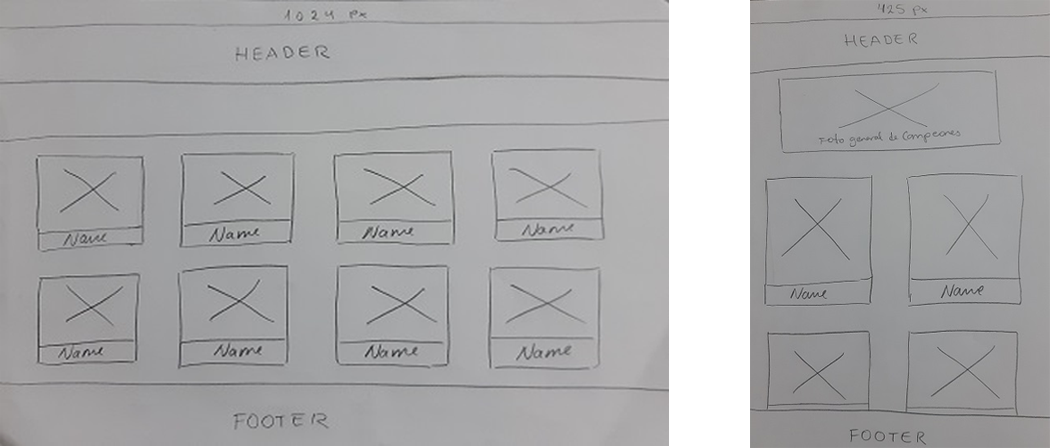 1024 px
HEADER
Name Name Name Name
Name Name Name Name
FOOTER
425 px
HEADER
Foto general de Campeones
Name Name
FOOTER